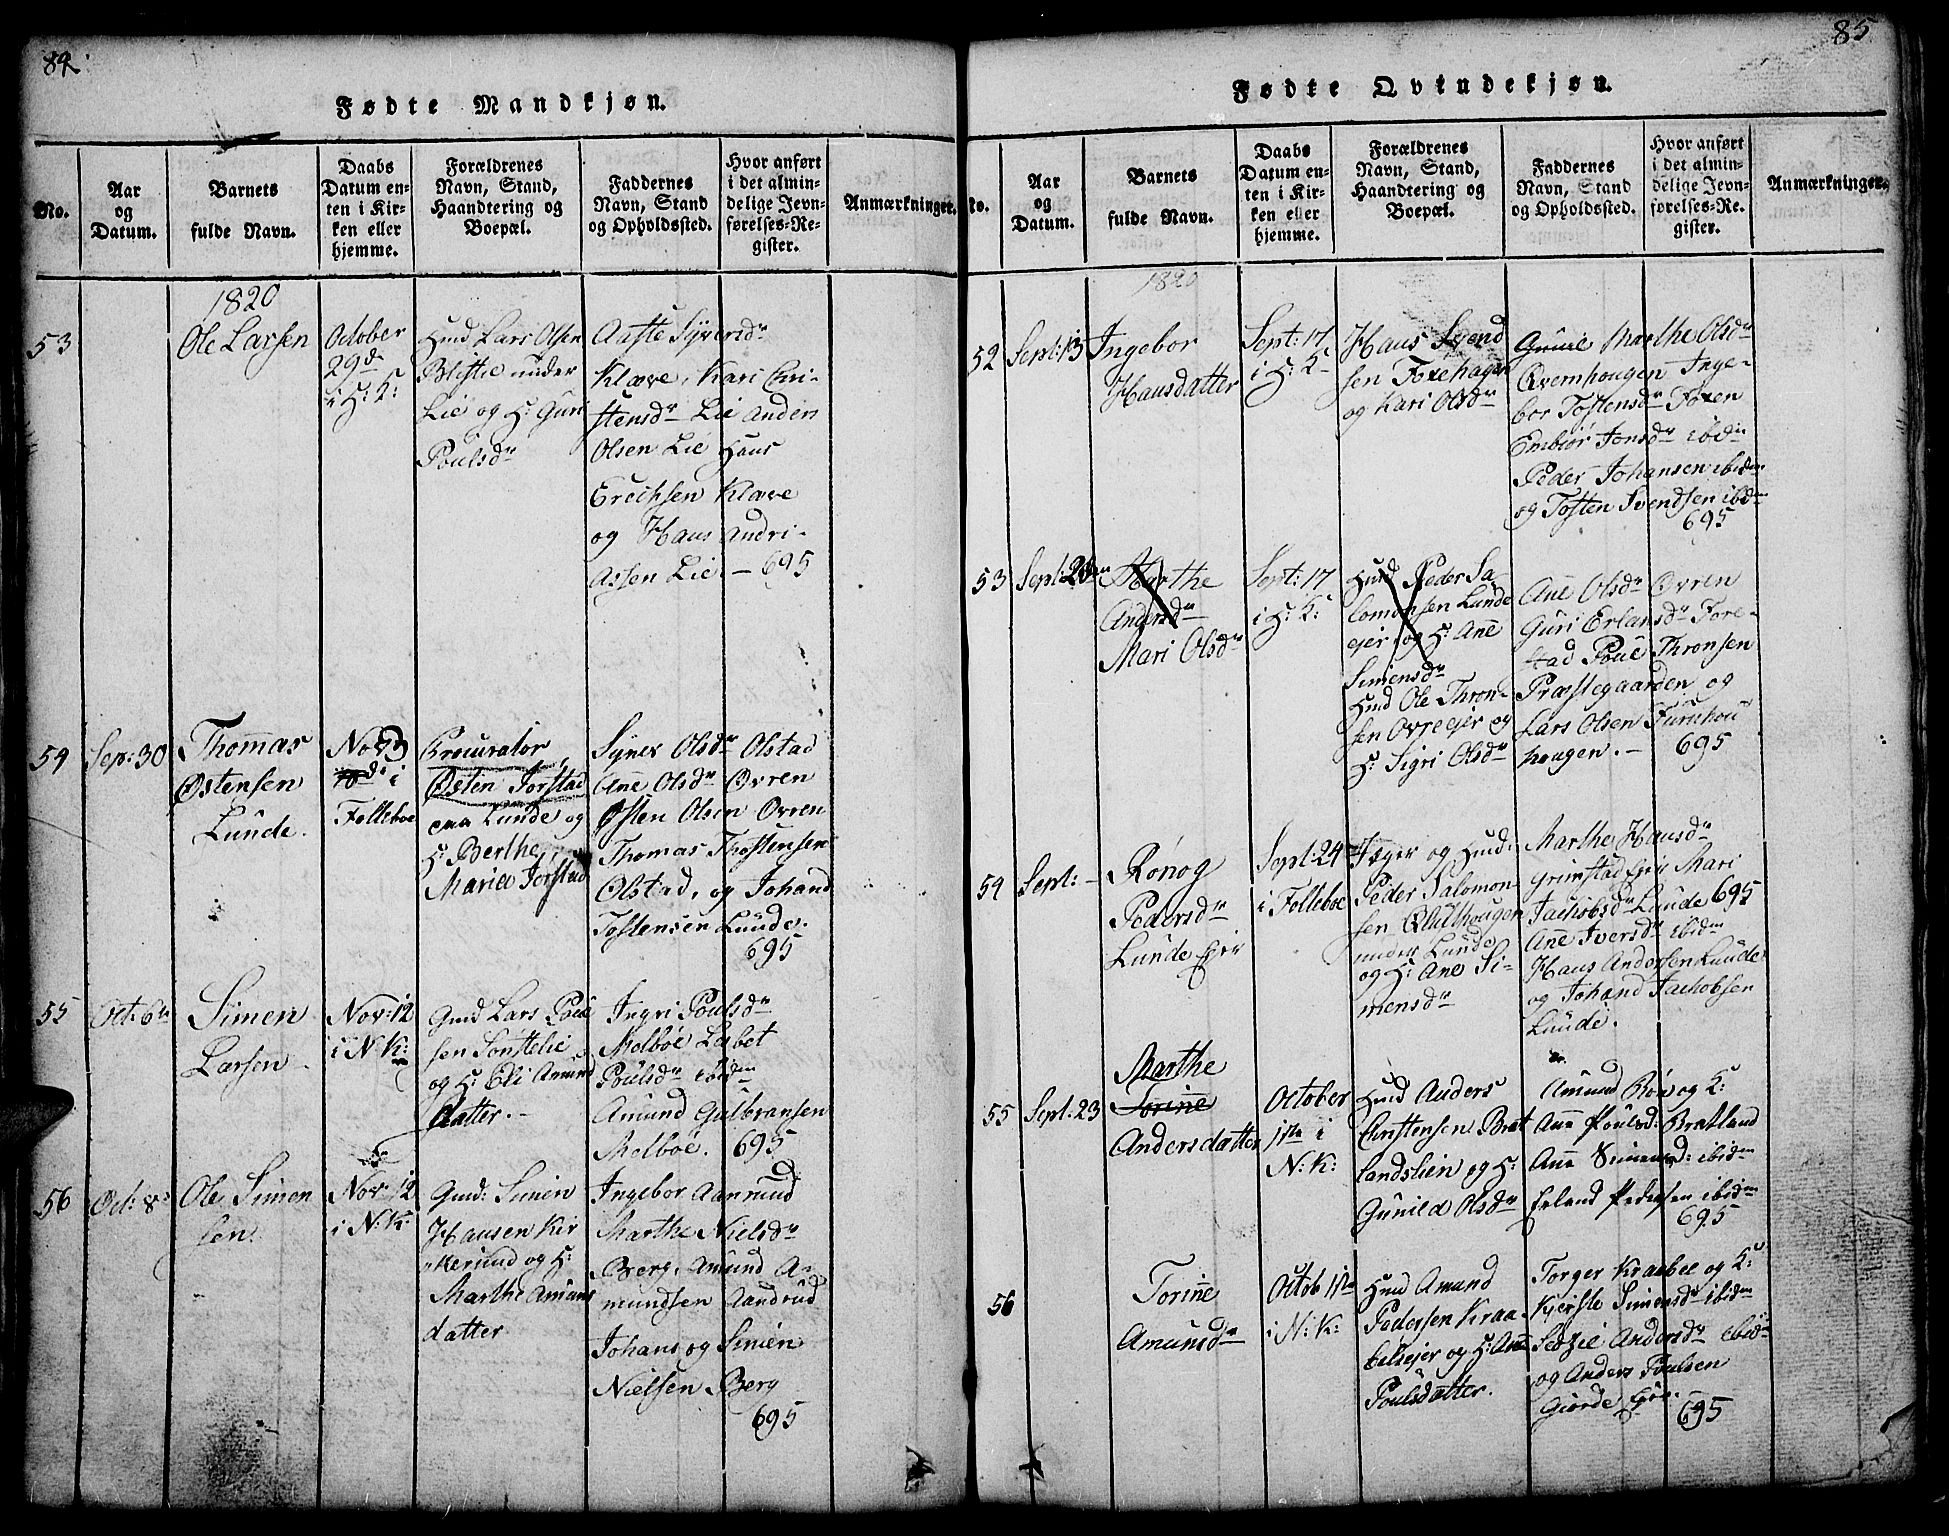 84.
Fødte Mandkjøn.
No.
Aar
og
Datum.
Barnets
fulde Navn.
Daabs
Datum en-
ten i Kir-
ken eller
hjemme.
Forældrenes
Navn, Stand,
Haandtering og
Boepæl.
Faddernes
Navn, Stand
og Opholdssted.
Hvor anført
i det almin-
delige Jevn-
førelses-Re-
gister.
Anmærkninger.
1820
53
Ole Larsen
October
29de
i H: K:
Huusd Lars Olsen
Blistie under
Lie og H: Guri
Poulsdr
Aaste Syversdr
Klæve, Kari Cri-
stensdr Lie Anders
Olsen Lie Hans
Erichsen Klæve
og Hans Andri-
assen Lie — 695
54
Sep: 30
Thomas
Østensen
Lunde.
Nov 3
i
Folleboe
Procurator
Østen Jorstad
paa Lunde og
H: Berthe
Maria Jorstad
Synev Olsdr Olstad
Ane Olsdr Øvren
Østen Olsen Øvren
Thomas Thostensen
Olstad, og Johand
Tostensen Lunde.
695
55
Oct: 6te
Simen
Larsen
Nov: 12
i N: K:
Gmd Lars Poul
sen Sonstelie
og H: Eli Amund
datter.
Ingri Poulsdr
Molboe Lisbet
Poulsdr ibidm
Amund Gulbransen
Molboe. 695
56
Oct: 8de
Ole Simen
sen
Nov: 12
i N: K:
Gmd: Simen
Hansen Kir
kerud og H:
Marthe Amuns
datter
Ingebor Aanrud
Marthe Nielsdr
Berg, Amund A-
mundsen Aandrud
Johans og Simen
Nielsen Berg
695
85
Fødte Qvindekjøn.
No.
Aar
og
Datum.
Barnets
fulde Navn.
Daabs
Datum en-
ten i Kir-
ken eller
hjemme.
Forældrenes
Navn, Stand,
Haandtering og
Boepæl.
Faddernes
Navn, Stand
og Opholdssted.
Hvor anført
i det almin-
delige Jevn-
førelses-Re-
gister.
Anmærkninger.
1820
52
Sept: 13
Ingebor
Hansdatter
Sept: 17
i H: K:
Hans Svend
sen Forehagen
og Kari Olsdr
Marthe Olsdr
Qvernhougen Inge-
bor Tostensdr Foren
Embiør Jonsdr ibidm
Peder Johansen ibidm
og Tosten Svendsen ibidm
695
53
Sept:
Marthe
Andersdr
Mari Olsdr
Sept: 17
i H: K:
Huusd Peder Sa-
lomonsen Lunde
ejer og H: Ane
Simensdr
Huusd Ole Thron-
sen Øvre ejer og
H: Sigri Olsdr
Ane Olsdr Øvren
Guri Erlansdr Fore-
stad Poul Thronsen
Præstegaarden og
Lars Olsen Furuhou
hougen. — 695
54
Sept: —
Rønog
Pedersdr
Lunde Ejer
Sept: 24
i Folleboe
Jæger og Huusd:
Peder Salomon-
sen Qluthougen
under Lunde
og H: Ane Si-
mensdr
Marthe Hansdr
Grimstad Ejer Mari
Jachobsdr Lunde 695
Ane Iversdr ibidm
Hans Andersen Lunde
og Johand Jachobsen
Lunde.
55
Sept: 23
Marthe
Torine
Andersdatter
October
1ste i
N: K:
Huusd Anders
Christensen Brat
landslien og H:
Gunild Olsdr
Amund Røn og K:
Ane Poulsd: Bratland
Ane Simensd: ibidm
Erland Pedersen ibidm
695
56
Torine
Amunsdr
Octob 1ste
i N: K:
Huusd Amund
Pedersen Kraa-
belsejer og H: Ane
Poulsdatter.
Torger Kraabel og K:
Kjerste Simensdr ibidm
Sedzie Andersdr ibidm
og Anders Poulsen
Giorde Ejer.
695